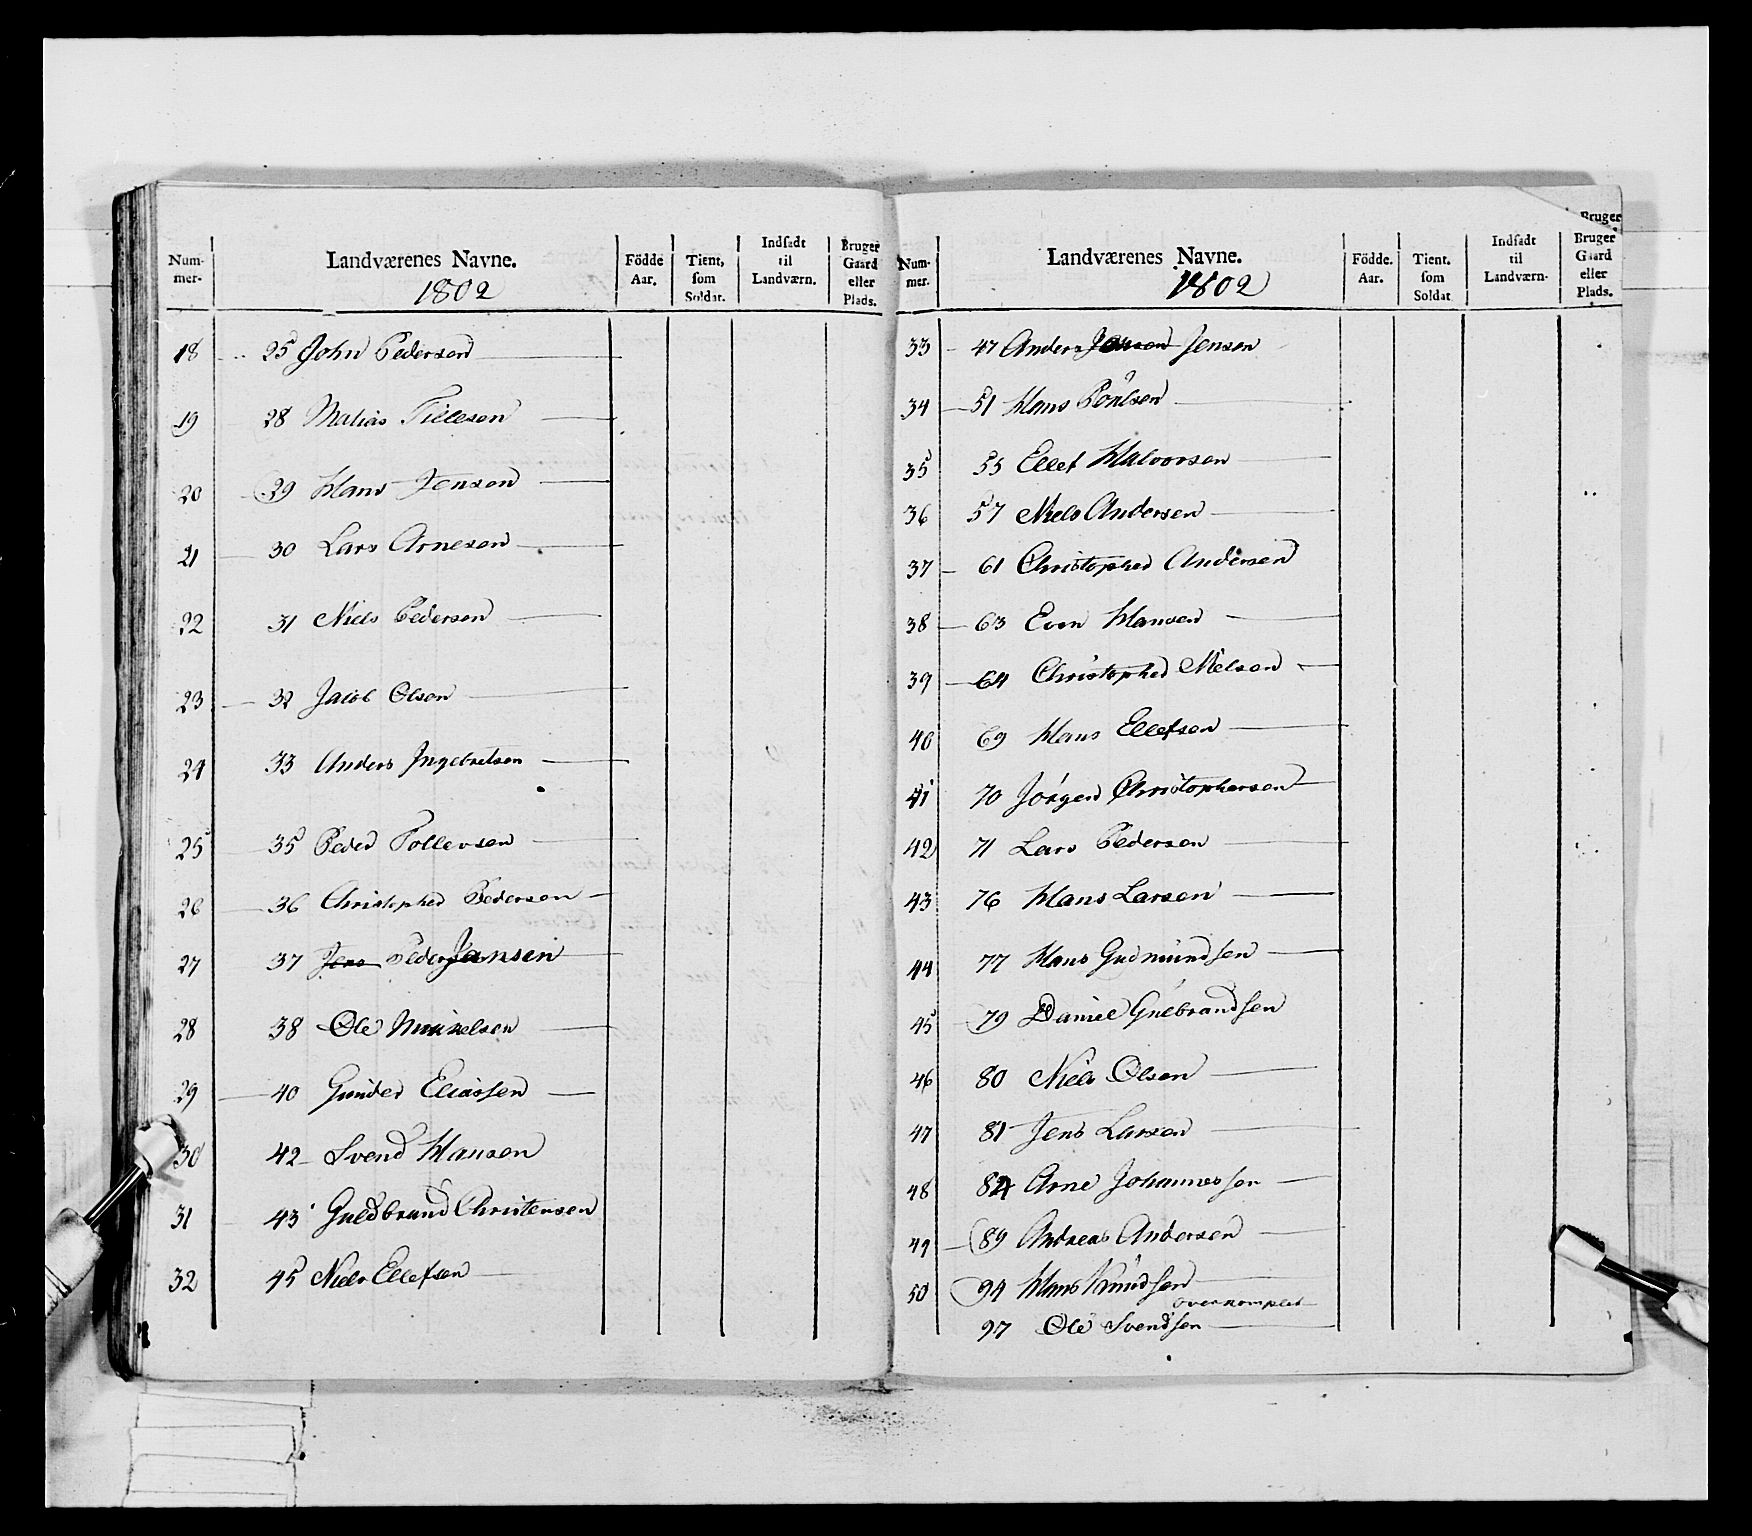 Num-
mer.
Landværenes Navne.
1802
Födde
Aar.
Tient,
som
Soldat.
Indsadt
til
Landværn.
Bruger
Gaard
eller
Plads.
18 25 John Pedersen
19 28 Matias Tillesen
20 29 Hans Jensen
21 30 Lars Arnesen
22 31 Niels Pedersen
23 32 Jacob Olsen
24 33 Anders Ingebretsen
25 35 Peder Tollevsen
26 36 Christopher Pedersen
27 37 Jens Peder Jansen
28 38 Ole Mikkelsen
29 40 Gunder Eliassen
30 42 Svend Hansen
31 43 Guldbrand Christensen
32 45 Niels Ellefsen
Num-
mer.
Landværenes Navne.
1802
Födde.
Aar.
Tient.
som
Soldat
Indsadt
til
Landværn.
Bruger
Bruger
Gaard
eller
Plads.
33 47 Anders Jensen Jensen
34 51 Hans Poulsen
35 55 Ellef Halvorsen
36 57 Niels Andersen
37 61 Christopher Andersen
38 63 Even Hansen
39 64 Christopher Nielsen
40 69 Hans Ellefsen
41 70 Jörgen Christophersen
42 71 Lars Pedersen
43 76 Hans Larsen
44 77 Hans Gudmundsen
45 79 Daniel Gulbrandsen
46 80 Niels Olsen
47 81 Jens Larsen
48 84 Arne Johannessen
49 89 Andreas Andersen
50 94 Hans Knudsen
overkomplet
97 Ole Svendsen